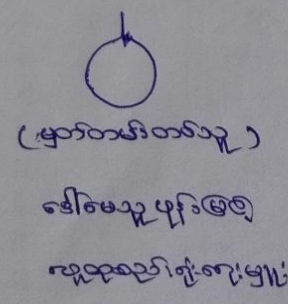 (မှတ်တမ်းတင်သူ)
ဒေါ်မေသူဖုန်းမြင့်
လူထုစည်းရုံးရေးမှူး